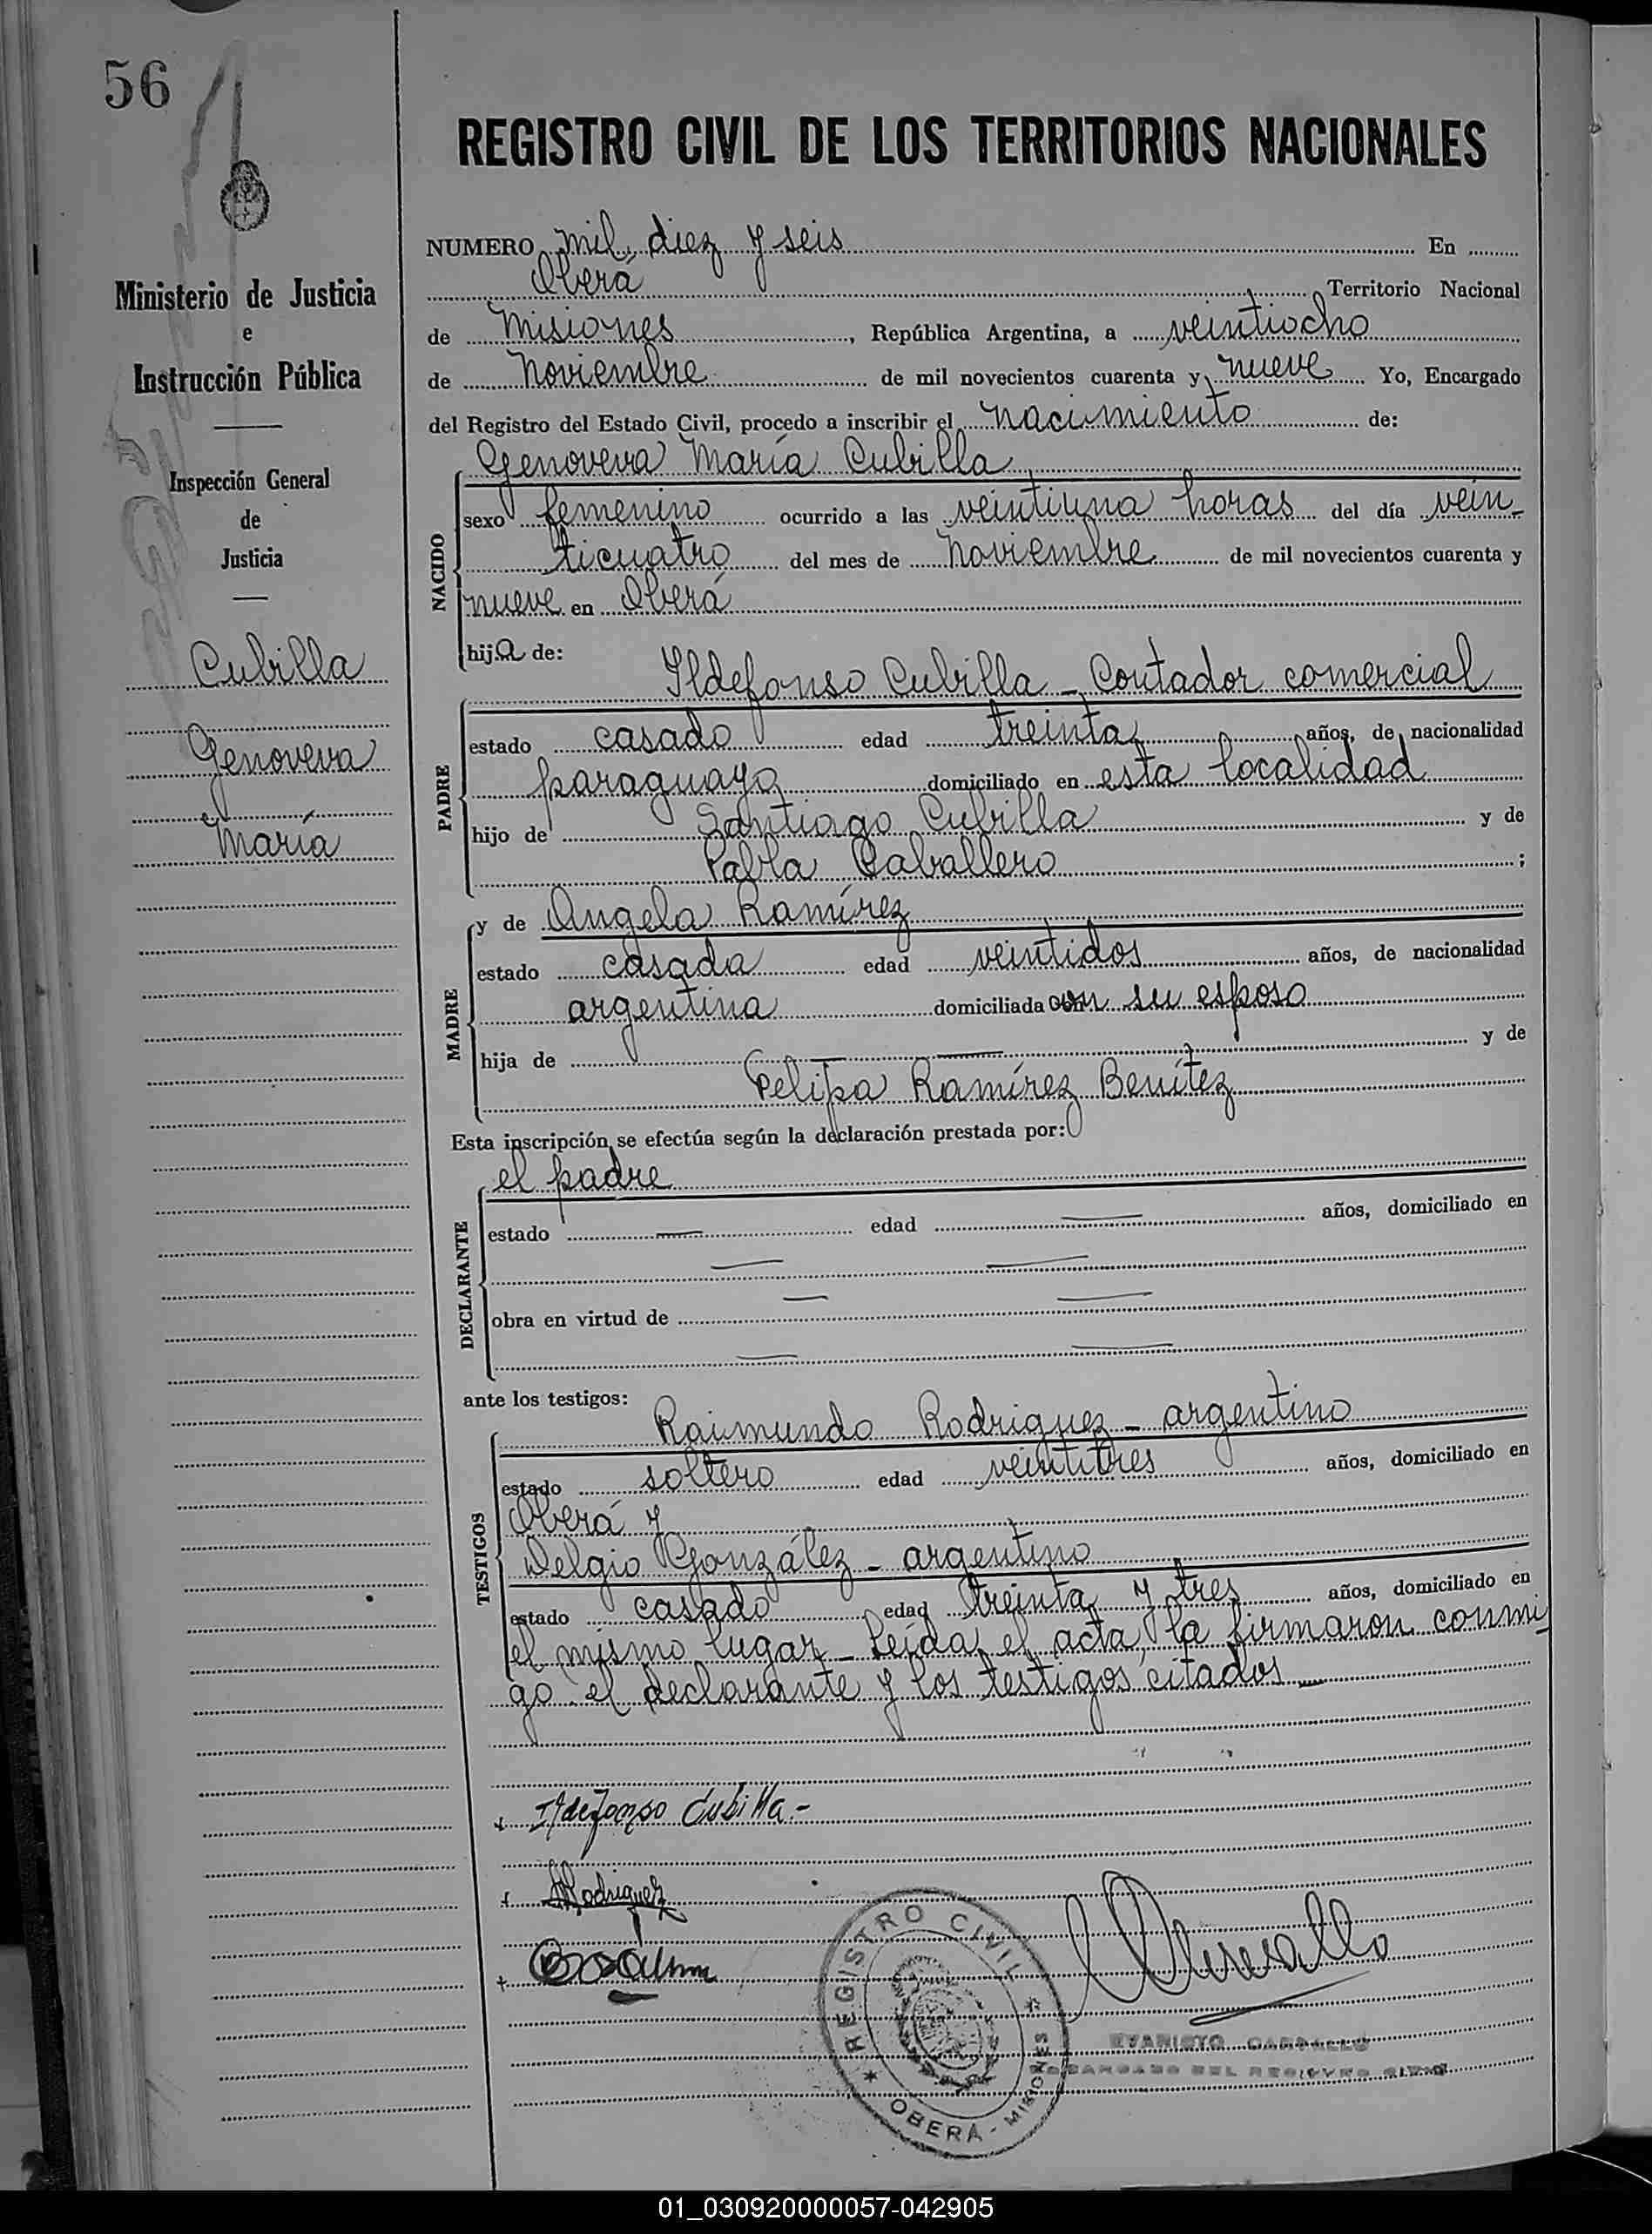 56
REGISTRO CIVIL DE LOS TERRITORIOS NACIONALES
Ministerio de Justicia
e
Instrucción Pública
Inspección General
de
Justicia
Cubilla
Genoveva
María
NUMERO mil diez y seis En
Oberá Territorio Nacional
de Misiones, República Argentina, a veintiocho
de Noviembre de mil novecientos cuarenta y nueve Yo, Encargado
del Registro del Estado Civil, procedo a inscribir el nacimiento de:
Genoveva María Cubilla
NACIDO
sexo femenino ocurrido a las veintiuna horas del día vein-
ticuatro del mes de Noviembre de mil novecientos cuarenta y
nueve en Oberá
hija de:
PADRE
Ildefonso Cubilla - Contador comercial
estado casado edad treinta años, de nacionalidad
paraguayo domiciliado en esta localidad
hijo de Santiago Cubilla y de
Pabla Caballero ;
MADRE
y de Angela Ramírez
estado casada edad veintidos años, de nacionalidad
argentina domiciliada con su esposo
hija de — — y de
Felipa Ramírez Benítez
Esta inscripción se efectúa según la declaración prestada por:
el padre
DECLARANTE
estado — edad — años, domiciliado en
— —
obra en virtud de — —
— —
ante los testigos:
TESTIGOS
Raimundo Rodriguez - argentino
estado soltero edad veintitres años, domiciliado en
Oberá y
Delgio González - argentino
estado casado edad treinta y tres años, domiciliado en
el mismo lugar - Leída el acta, la firmaron conmi-
go el declarante y los testigos citados
Ildefonso Cubilla.-
Rodriguez
REGISTRO CIVIL
OBERÁ - MISIONES
EVARISTO CARBALLO
ENCARGADO DEL REGISTRO CIVIL
01_030920000057-042905